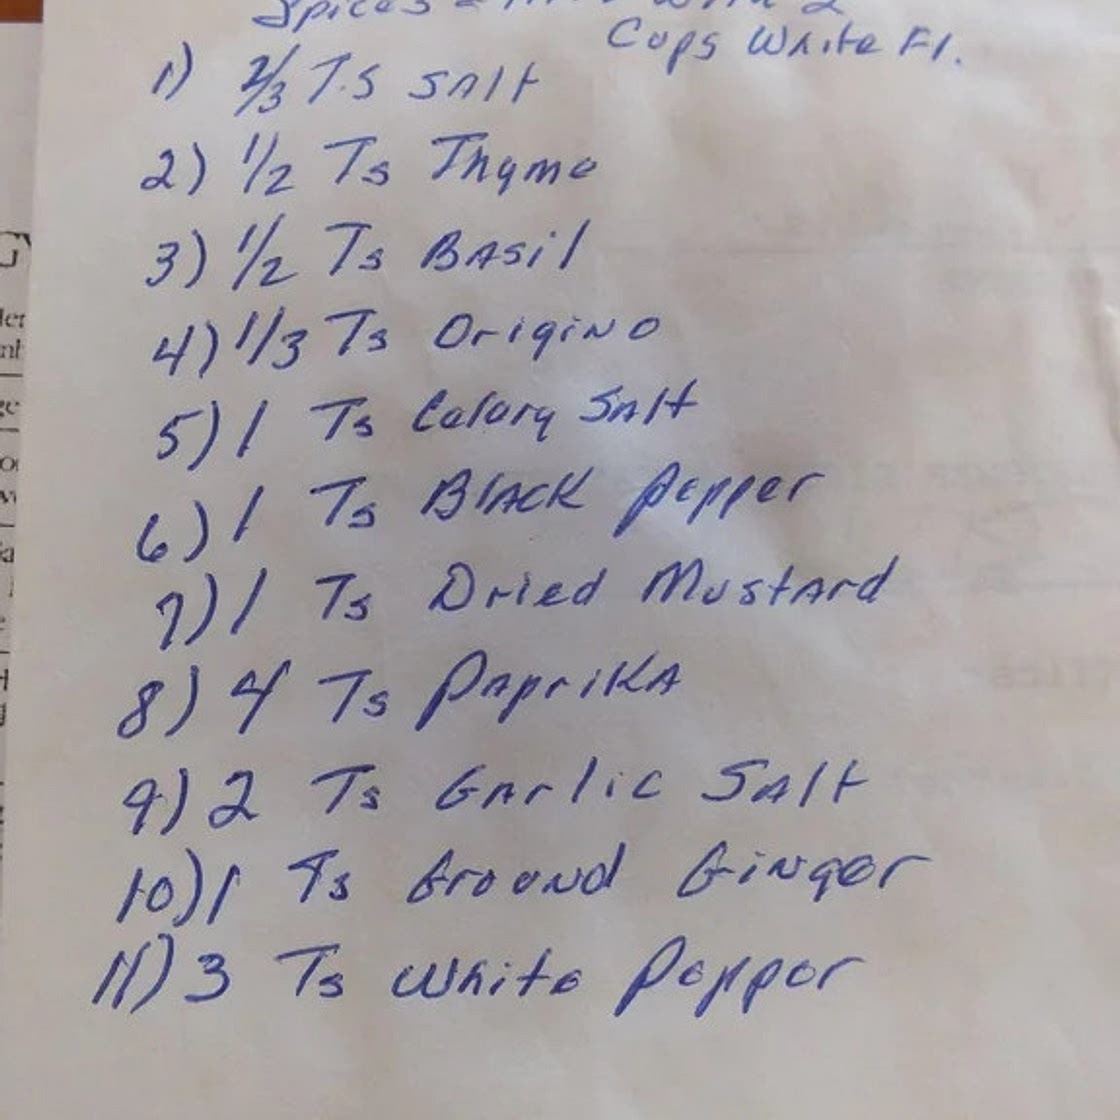 Spices
Cups White Fl.
1) 2/3 T.S SAlt
2) 1/2 Ts Thyme
3) 1/2 Ts BAsil
4) 1/3 Ts OrigiNo
5) 1 Ts Celary SAlt
6) 1 Ts BlAcK pepper
7) 1 Ts Dried MustArd
8) 4 Ts PApriKA
9) 2 Ts GArlic SAlt
10) 1 Ts GrouNd GiNger
11) 3 Ts White Pepper